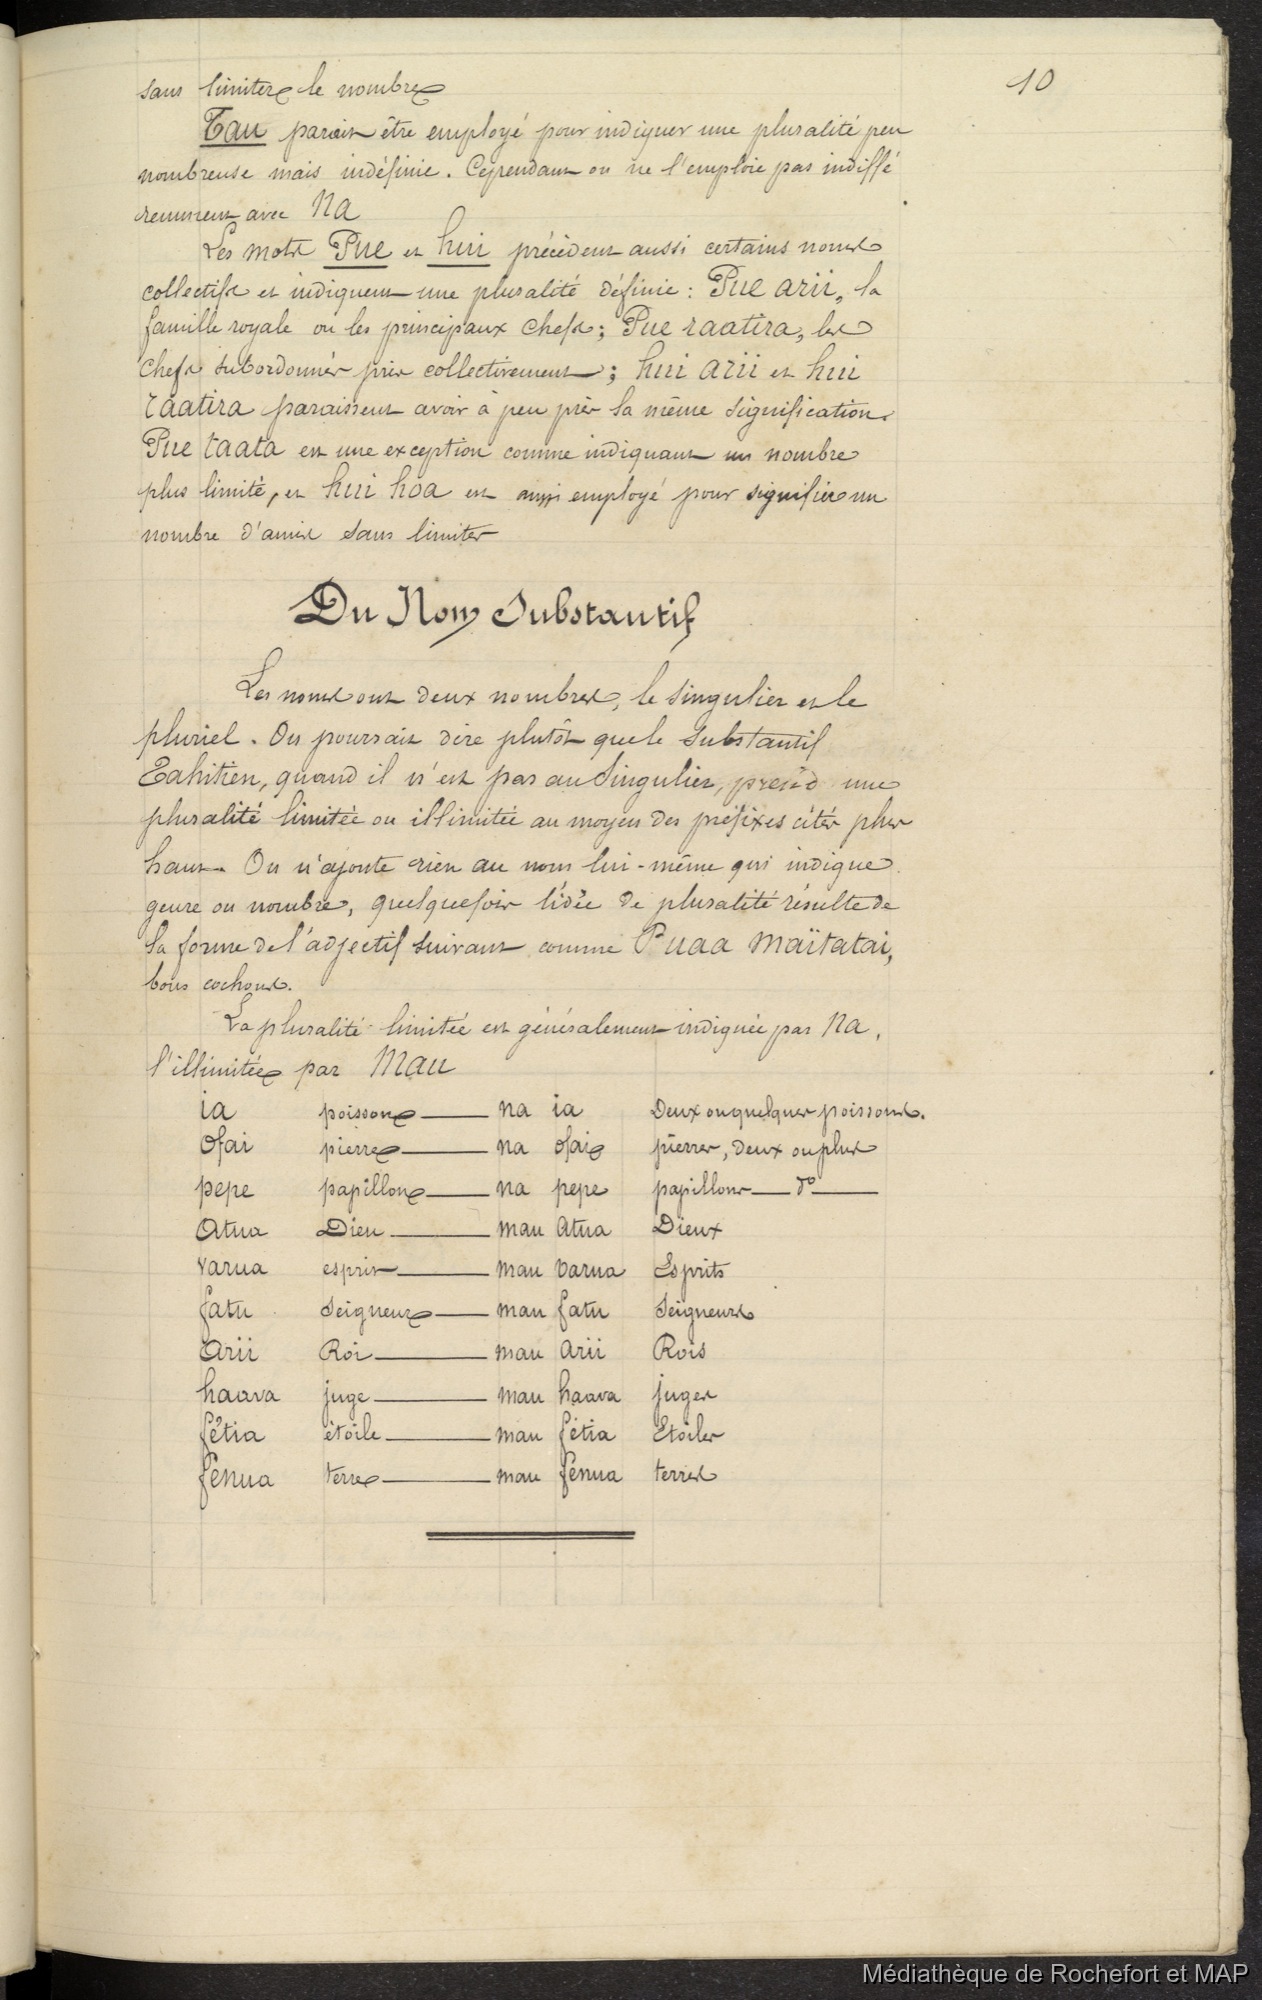 10
sans limiter le nombre
Tau parait être employé pour indiquer une pluralité peu
nombreuse mais indéfinie. Cependant on ne l'emploie pas indiffé
remment avec Na
Les mots Pue et hui précèdent aussi certains noms
collectifs et indiquent une pluralité définie : Pue arii, la
famille royale ou les principaux chefs; Pue raatira, les
chefs subordonnés pris collectivement; hui arii et hui
raatira paraissent avoir à peu près la même signification.
Pue taata est une exception comme indiquant un nombre
plus limité, et hui hoa est aussi employé pour signifier un
nombre d'amis sans limiter
Du Nom Substantif
Les noms ont deux nombres, le singulier et le
pluriel. On pourrait dire plutôt que le substantif
Tahitien, quand il n'est pas au Singulier, prend une
pluralité limitée ou illimitée au moyen des préfixes cités plus
haut. On n'ajoute rien au nom lui-même qui indique
genre ou nombre, quelquefois l'idée de pluralité résulte de
la forme de l'adjectif suivant comme Puaa maïtatai,
bons cochons.
La pluralité limitée est généralement indiquée par na,
l'illimitée par Mau
ia poisson — na ia Deux ou quelques poissons.
Ofai pierre — na ofai pierres, deux ou plus
pepe papillon — na pepe papillons — do —
Atua Dieu — mau Atua Dieux
varua esprit — mau varua Esprits
fatu Seigneur — mau fatu Seigneurs
Arii Roi — mau arii Rois
haava juge — mau haava juges
fétia étoile — mau fétia Etoiles
fénua terre — mau fénua terres
Médiathèque de Rochefort et MAP